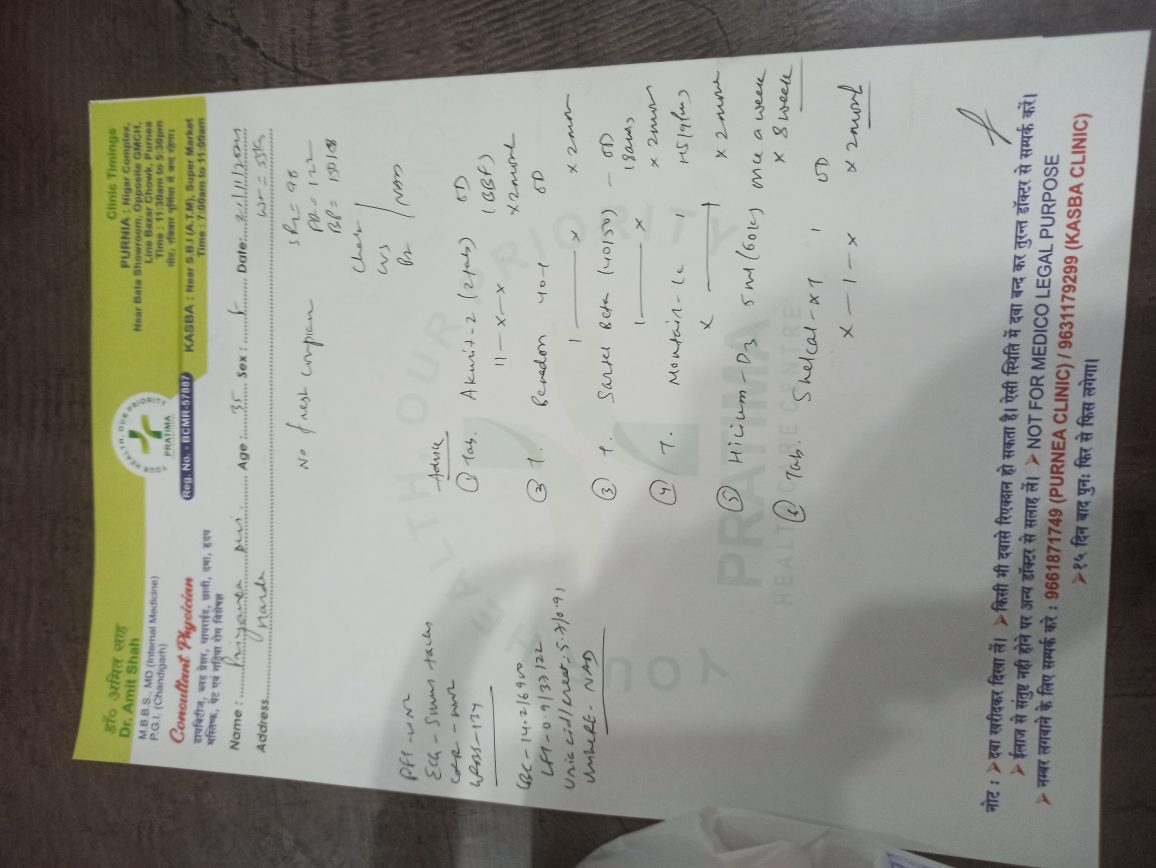 डॉ० अमित साह
Dr. Amit Shah
M.B.B.S., MD (Internal Medicine)
P.G.I. (Chandigarh)
Consultant Physician
डायबिटीज, ब्लड प्रेशर, थायराईड, छाती, दमा, हृदय
मस्तिष्क, पेट एवं गठिया रोग विशेषज्ञ
YOUR HEALTH, OUR PRIORITY
PRATIMA
Reg. No. - BCMR-57887
Clinic Timings
PURNIA : Nigar Complex,
Near Bata Showroom, Opposite GMCH,
Line Bazar Chowk, Purnea
Time : 11:30am to 5:30pm
KASBA : Near S.B.I (A.T.M), Super Market
Time : 7:00am to 11:00am
Name : Priyanka Devi Age : 35 Sex : F Date:
Address
No fresh complain
PR = 122
Chest
CVS
NAD
ECG - Sinus tachy
CBC - 14.2/6900
LFT - 0.9/37/22
Uric acid/creat - 5.7/0.9
Urine RE - NAD
Advice
① Tab. Akurit-2 (2 tabs) OD
11 - x - x (BBF)
x 2 month
② T. Benadon 40 1 OD
1 x x 2 mon
③ T. Sartel Beta (40/50) - OD
1 x
x 2 mon
④ T. Montair-LC 1
x 1 x 2 mon
⑤ D3 5 ml (60K) once a week
x 8 week
⑥ Tab. Shelcal-XT 1 OD
x - 1 - x x 2 mont
YOUR HEALTH OUR PRIORITY
PRATIMA
HEALTH CARE CENTRE
नोट : ➤ दवा खरीदकर दिखा लें। ➤ किसी भी दवासे रिएक्शन हो सकता है। ऐसी स्थिति में दवा बन्द कर तुरन्त डॉक्टर से सम्पर्क करें।
➤ ईलाज से संतुष्ट नही होने पर अन्य डॉक्टर से सलाह लें। ➤ NOT FOR MEDICO LEGAL PURPOSE
➤ नम्बर लगवाने के लिए सम्पर्क करे : 9661871749 (PURNEA CLINIC) / 9631179299 (KASBA CLINIC)
➤ १५ दिन बाद पुनः फिर से फिस लगेगा।